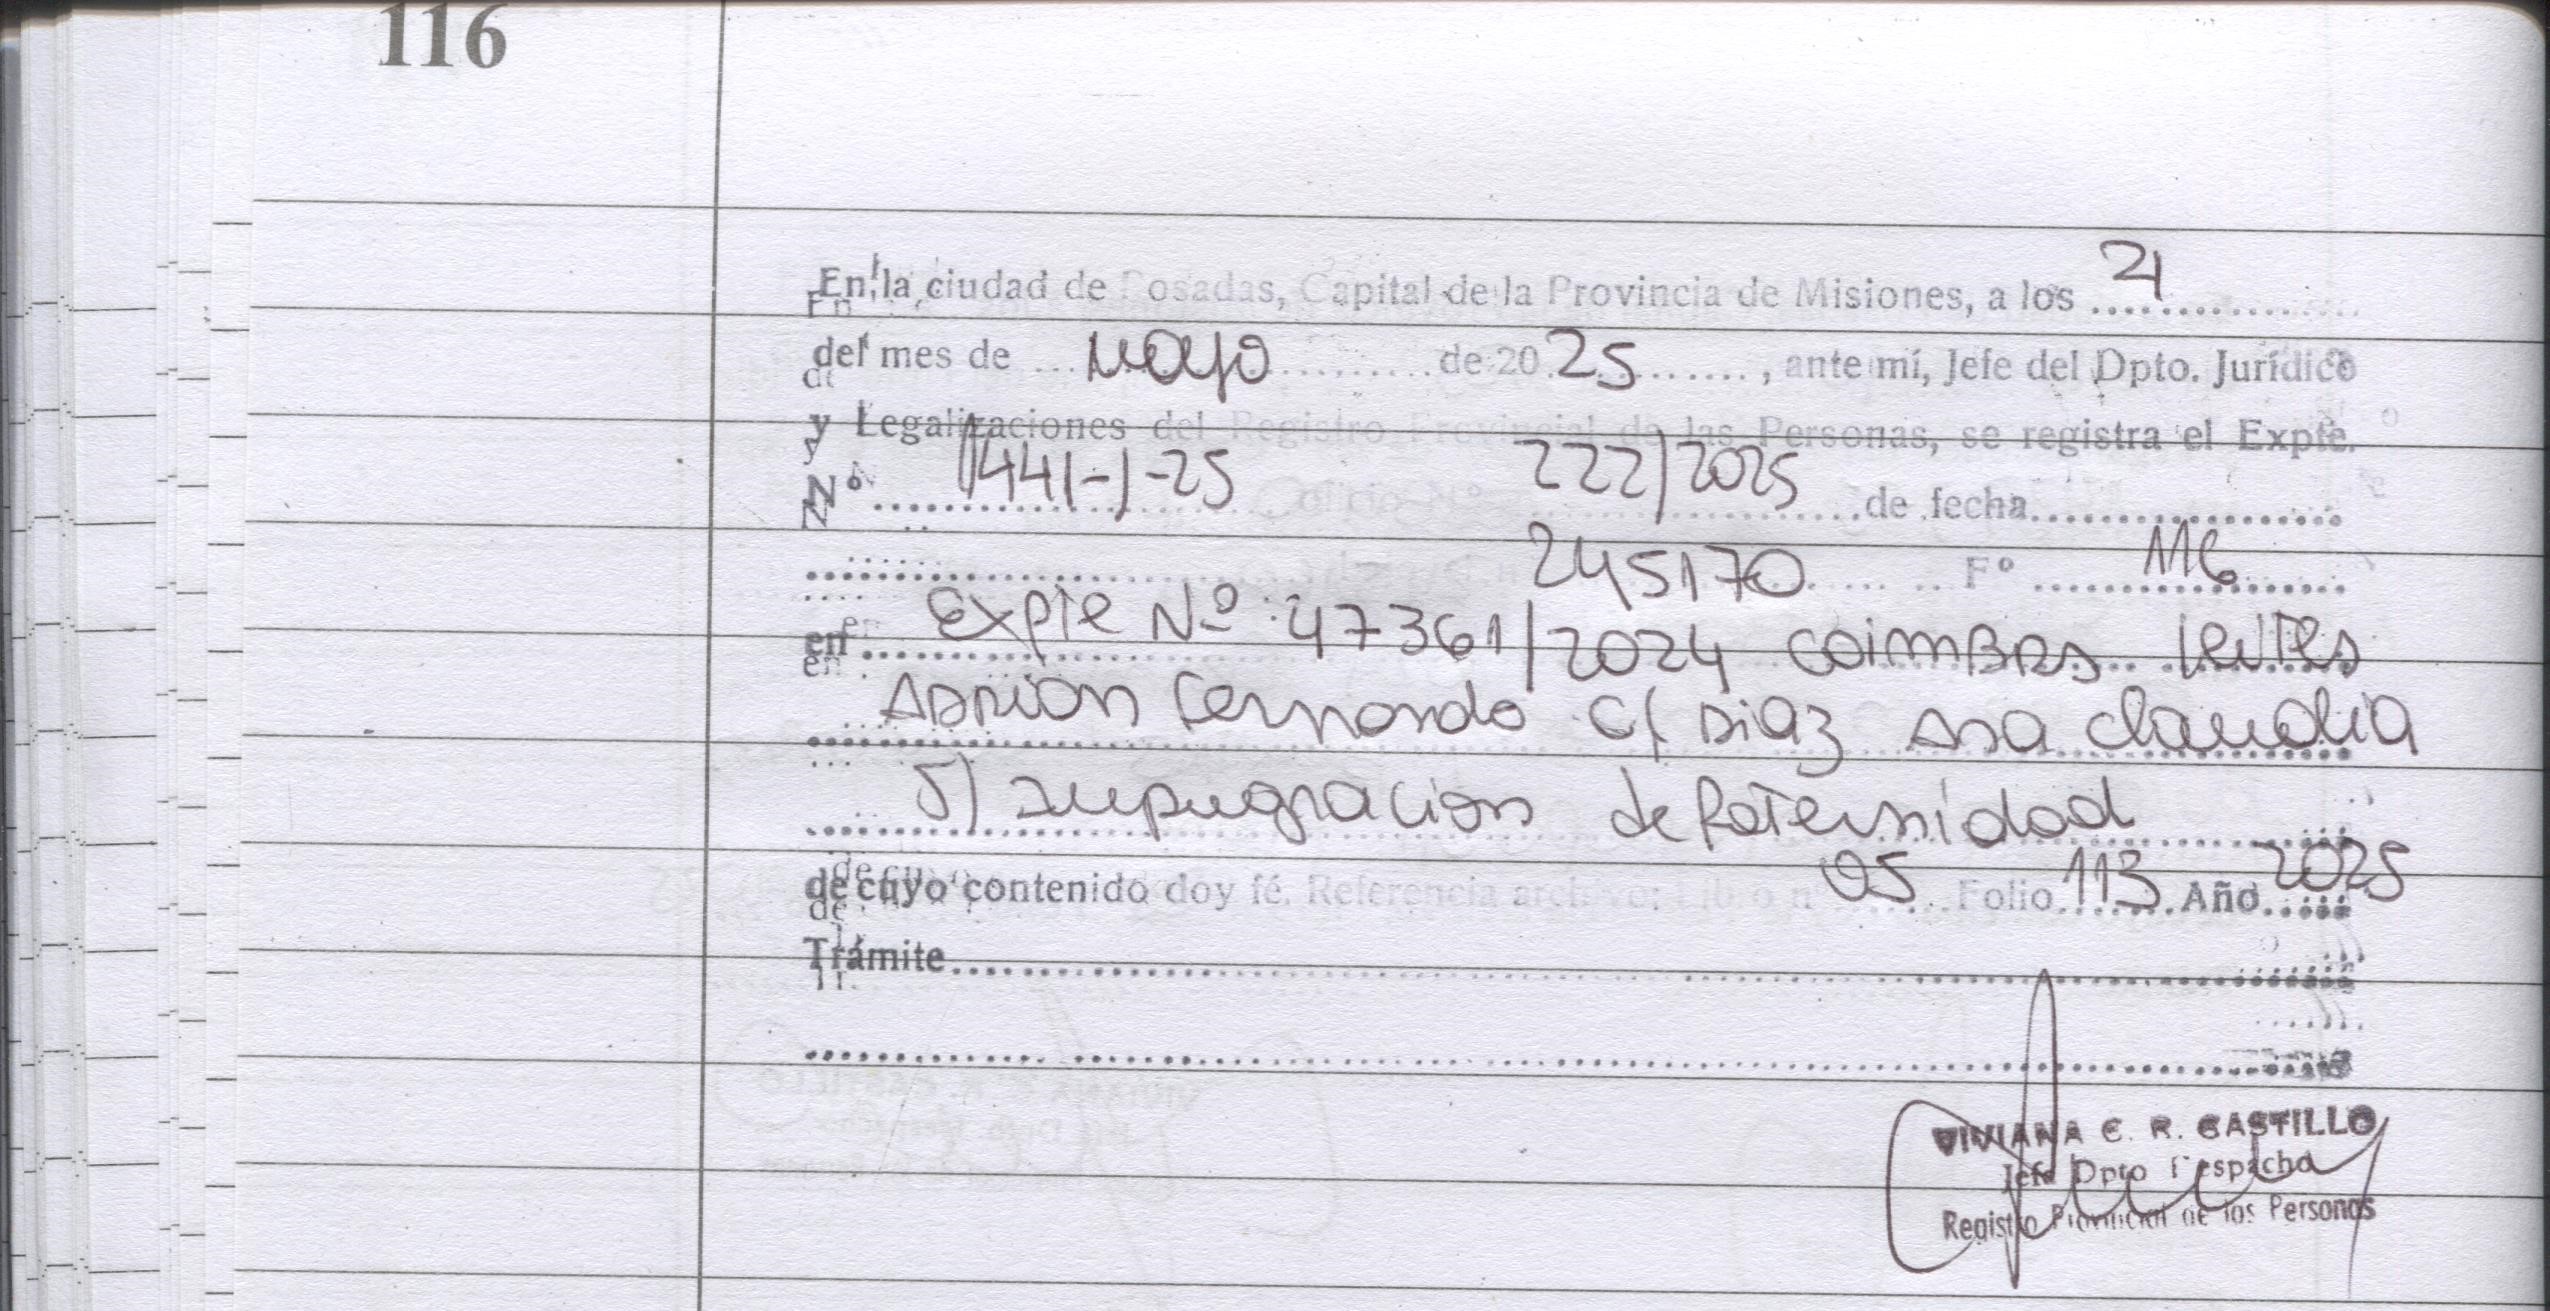 116
En la ciudad de Posadas, Capital de la Provincia de Misiones, a los 21
del mes de mayo de 2025, ante mí, Jefe del Dpto. Jurídico
y Legalizaciones del Registro Provincial de las Personas, se registra el Expte.
Nº 1441-J-25 222/2025 de fecha
245170 Fº 116
en Expte Nº: 47361/2024 Coimbra
Adrian Fernando c/ Diaz Ana Claudia
S/ Impugnacion de Paternidad
de cuyo contenido doy fé. Referencia archivo: Libro nº 05 Folio 113 Año 2025
Trámite
VIVIANA C. R. CASTILLO
Jefe Dpto Despacho
Registro Provincial de las Personas